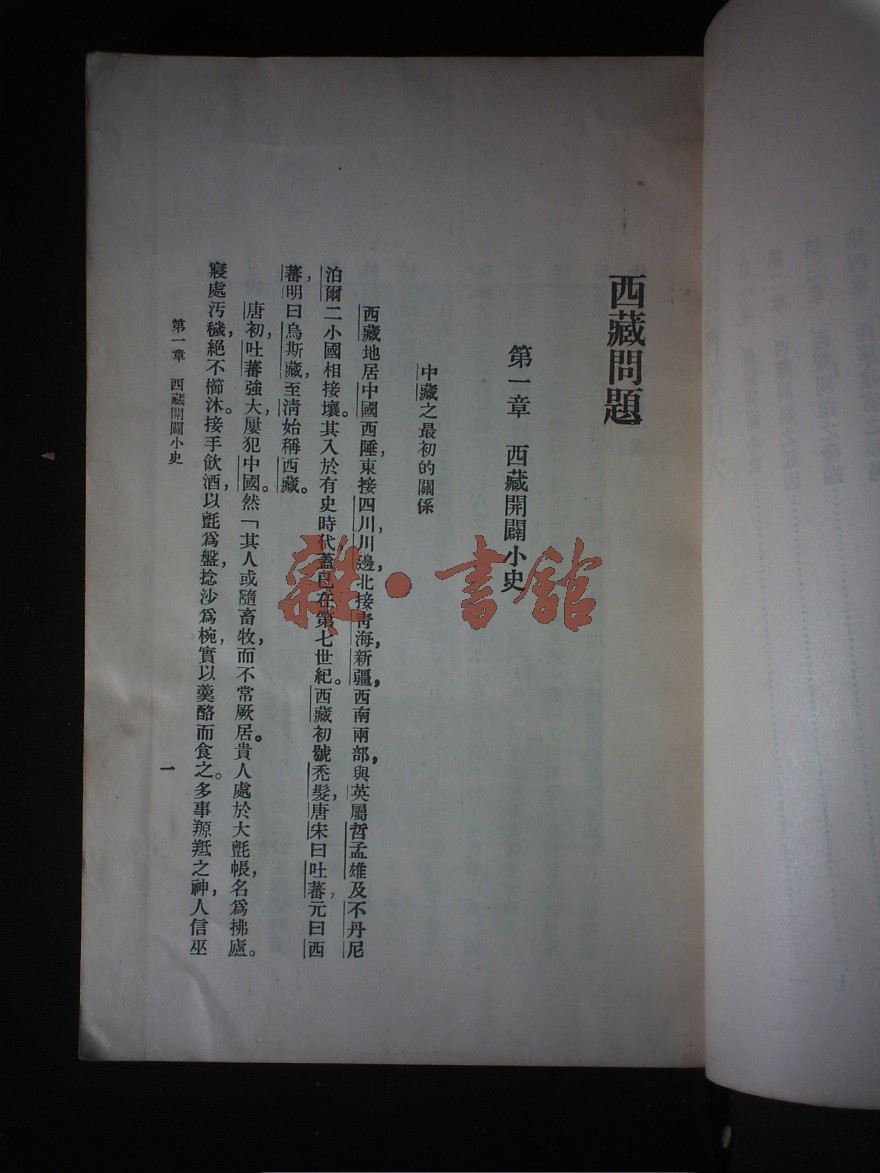 西藏問題
第一章　西藏開闢小史
中藏之最初的關係
西藏地居中國西陲，東接四川川邊，北接青海，新疆，西南兩部，與英屬哲孟雄及不丹尼
泊爾二小國相接壤。其入於有史時代蓋已在第七世紀。西藏初號禿髮，唐宋曰吐蕃，元曰西
蕃，明曰烏斯藏，至淸始稱西藏。
唐初，吐蕃強大屢犯中國。然「其人或隨畜牧，而不常厥居。貴人處於大氈帳，名爲拂廬。
寢處汚穢，絕不櫛沐。接手飲酒，以氈爲盤，捻沙爲椀，實以羹酪而食之。多事羱羝之神，人信巫
第一章　西藏開闢小史
一
雜·書館